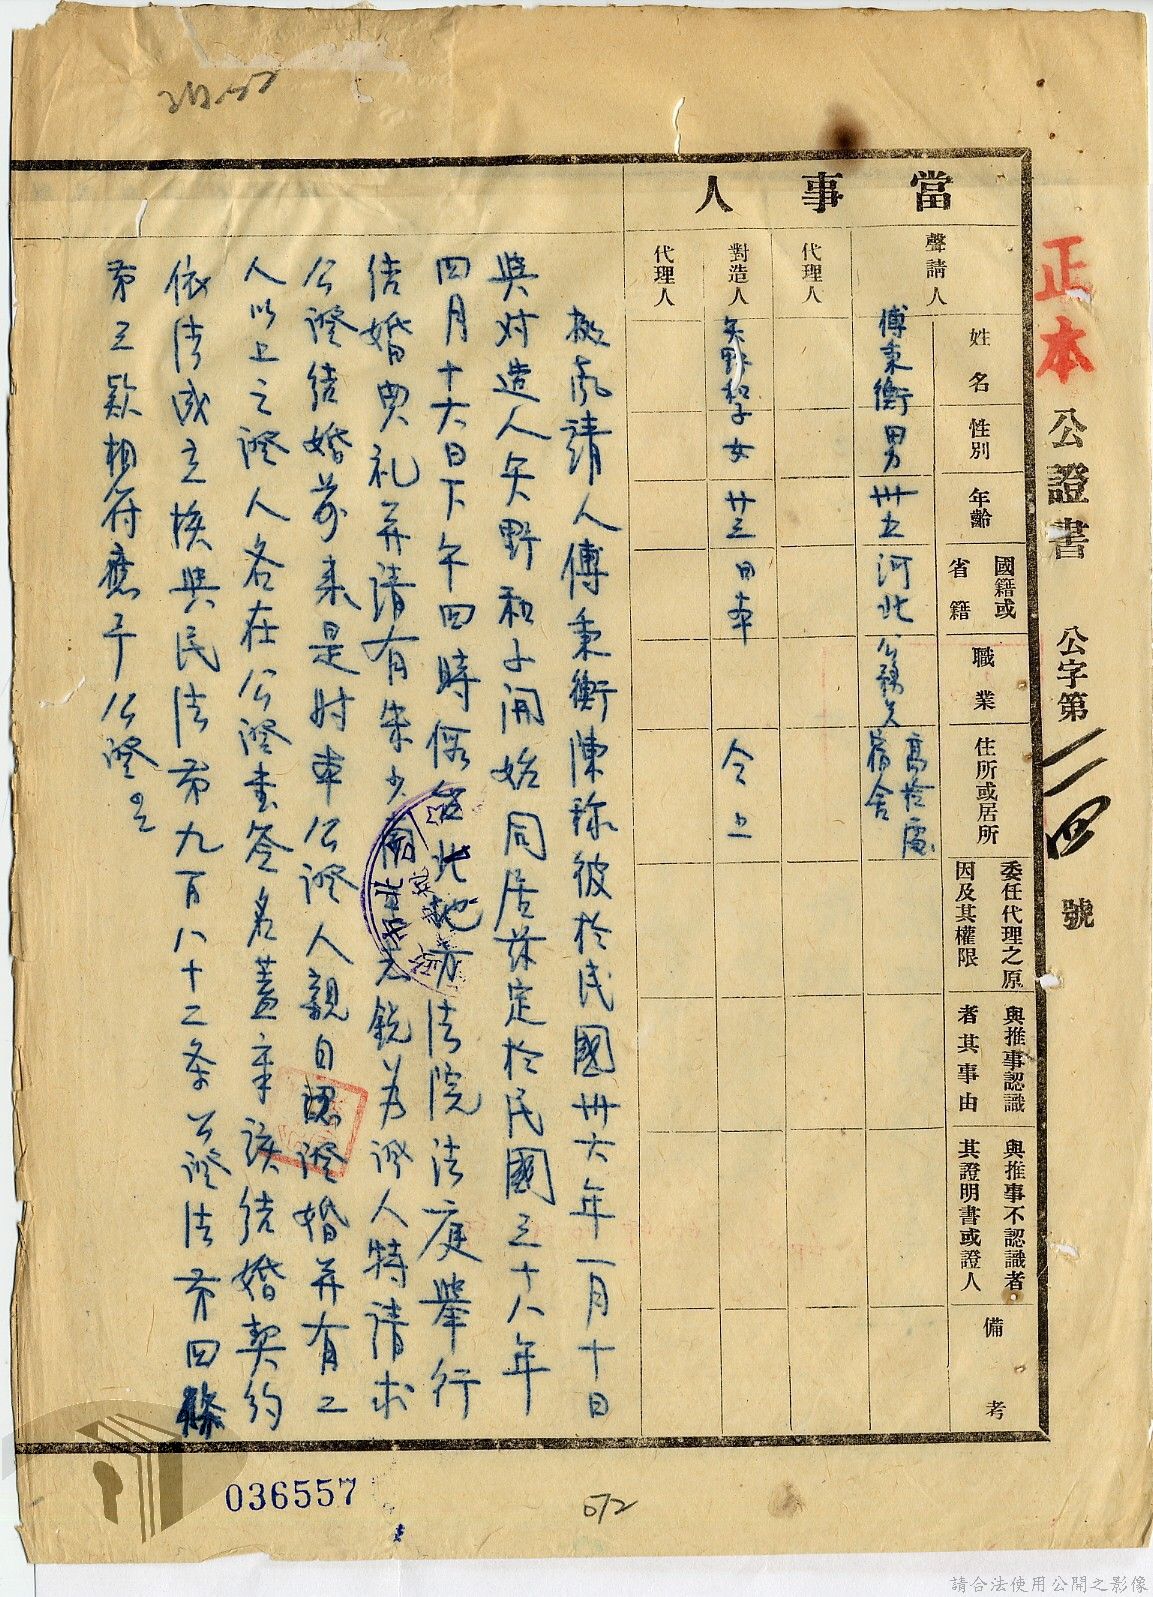 正本
公證書 公字第二一四號
當事人
聲請人
代理人
對造人
代理人
姓名
性別
年齡
國籍或省籍
職業
住所或居所
委任代理之原因及其權限
與推事認識者其事由
與推事不認識者其證明書或證人
備考
傅秉衡 男 卅五 河北 公務員 高檢處宿舍
矢野和子 女 廿三 日本 仝上
據声請人傅秉衡陳称彼於民國卅六年一月十日
與对造人矢野和子開始同居茲定於民國三十八年
四月十六日下午四時假台北地方法院法庭舉行
结婚典礼并請有朱少
銳為證人特請求
公證结婚前来是时本公證人親自認證婚并有二
人以上之證人各在公證書签名蓋章該结婚契約
依法成立核與民法第九百八十二条公證法第四條
第三款相符應予公證
036557
572
請合法使用公開之影像